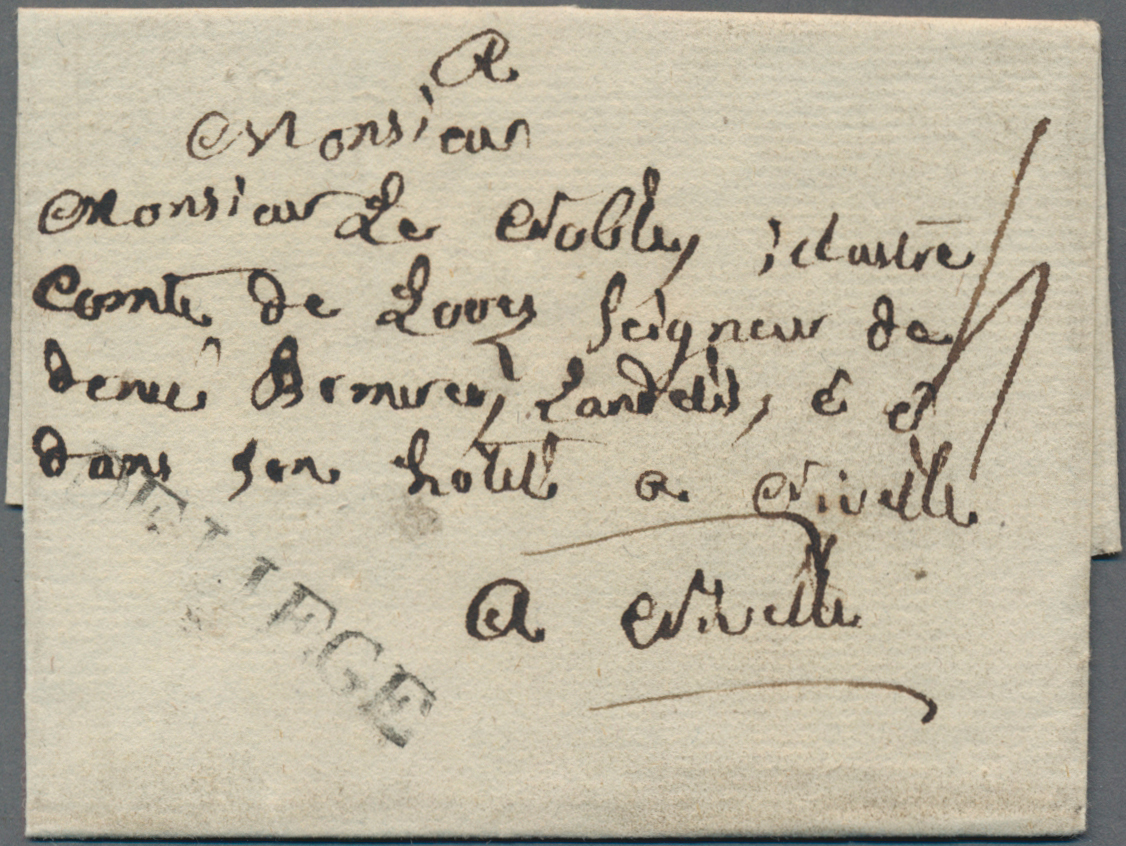 A
Monsieur
Monsieur Le Noble, illustre
Comte de Looz Seigneur de
denée & &
dans son hôtel a Nivelle
A Nivelle
DE LIEGE